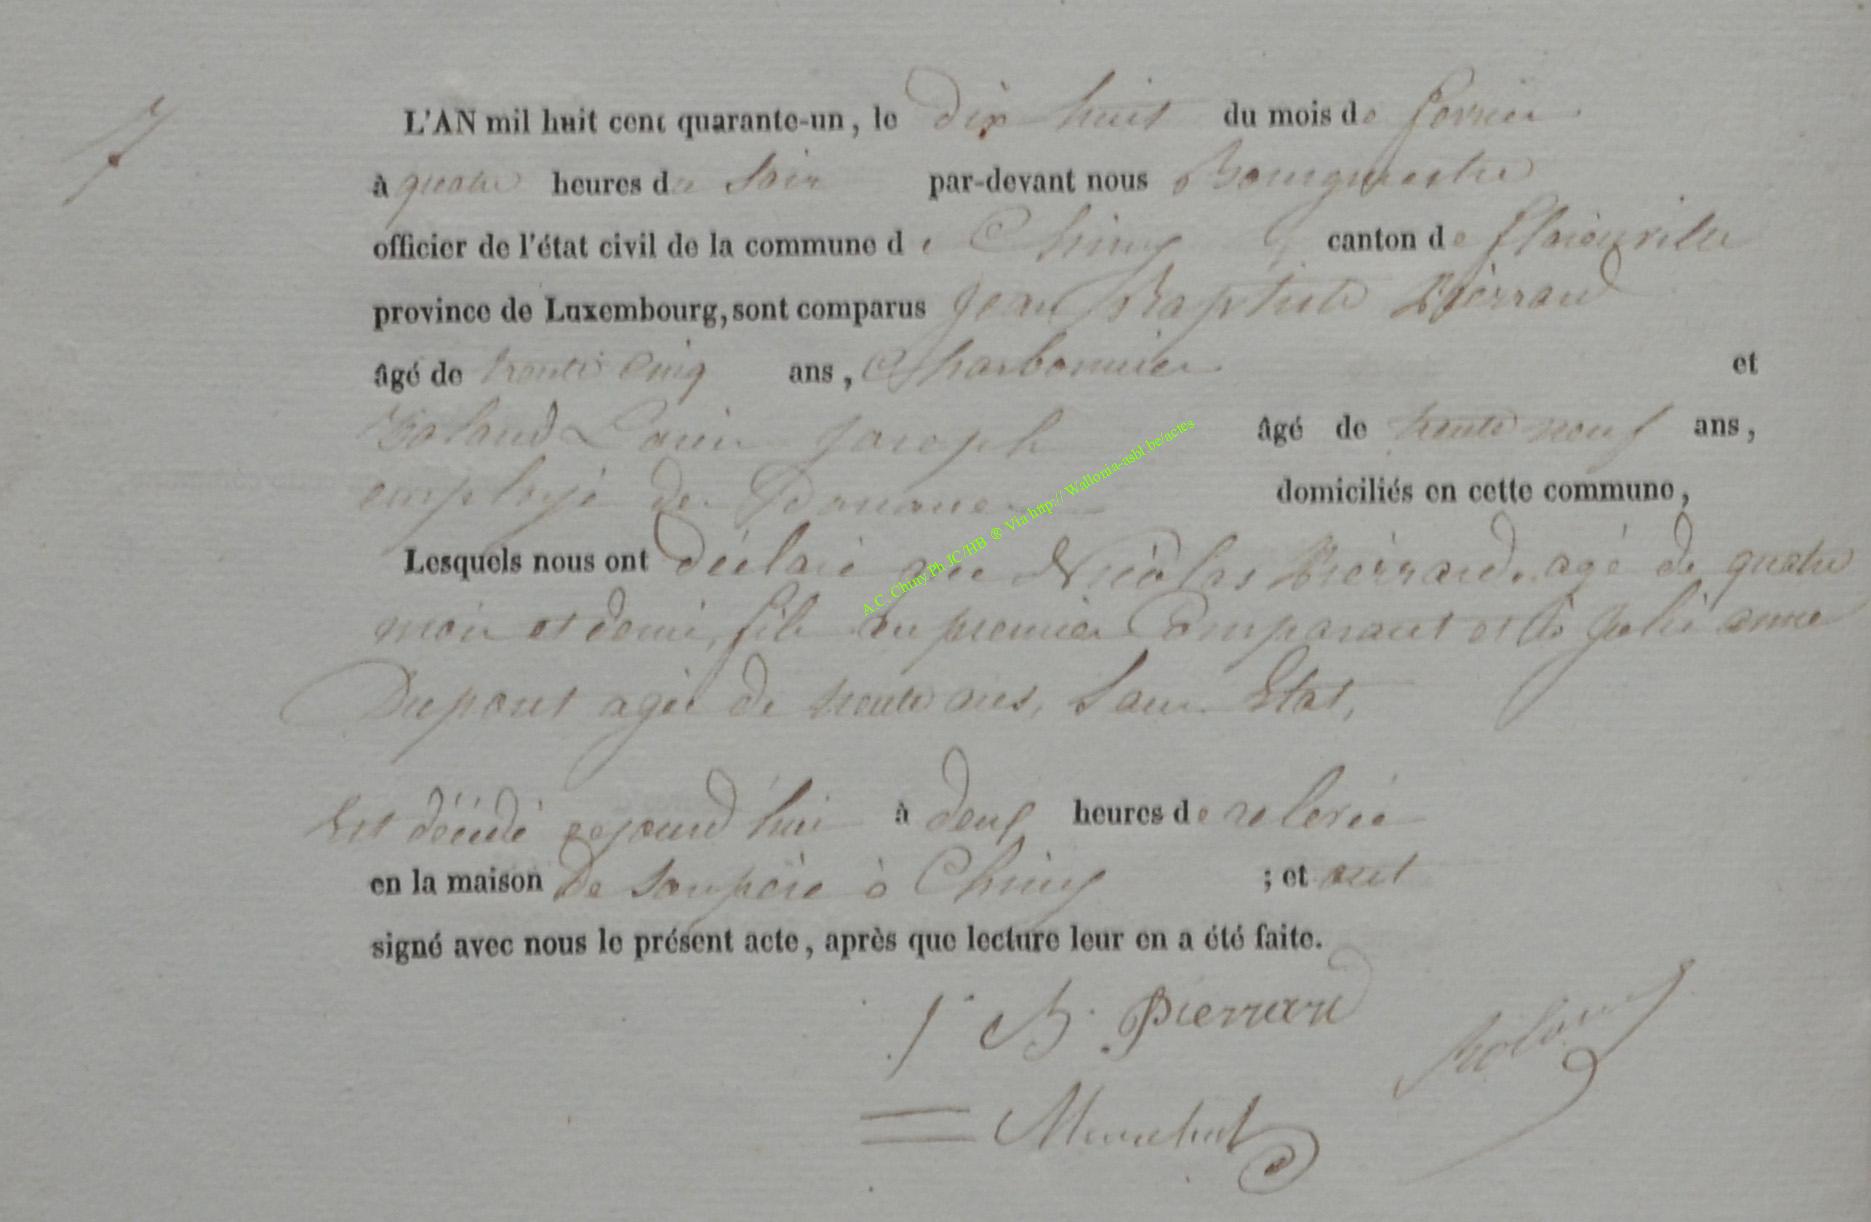 7
L'AN mil huit cent quarante-un, le dix huit du mois de fevrier
à quatre heures du Soir par-devant nous Bourgmestre
officier de l'état civil de la commune de Chiny canton de florenville
province de Luxembourg, sont comparus Jean Baptiste Pierrard
âgé de trente cinq ans, Charbonnier et
Roland Louis Joseph âgé de trente neuf ans,
employé de Douane domiciliés en cette commune,
Lesquels nous ont déclaré que Nicolas Pierrard, agé de quatre
mois et demi, fils du premier Comparant et de Julie anne
Dupont agée de trente ans, Sans Etat,
Est décédé aujourd'hui à deux heures de relevée
en la maison de son père à Chiny ; et ont
signé avec nous le présent acte, après que lecture leur en a été faite.
J. B. Pierrard
Roland
A.C. Chiny Ph JC/HB ® Via http:// Wallonia-asbl.be/actes